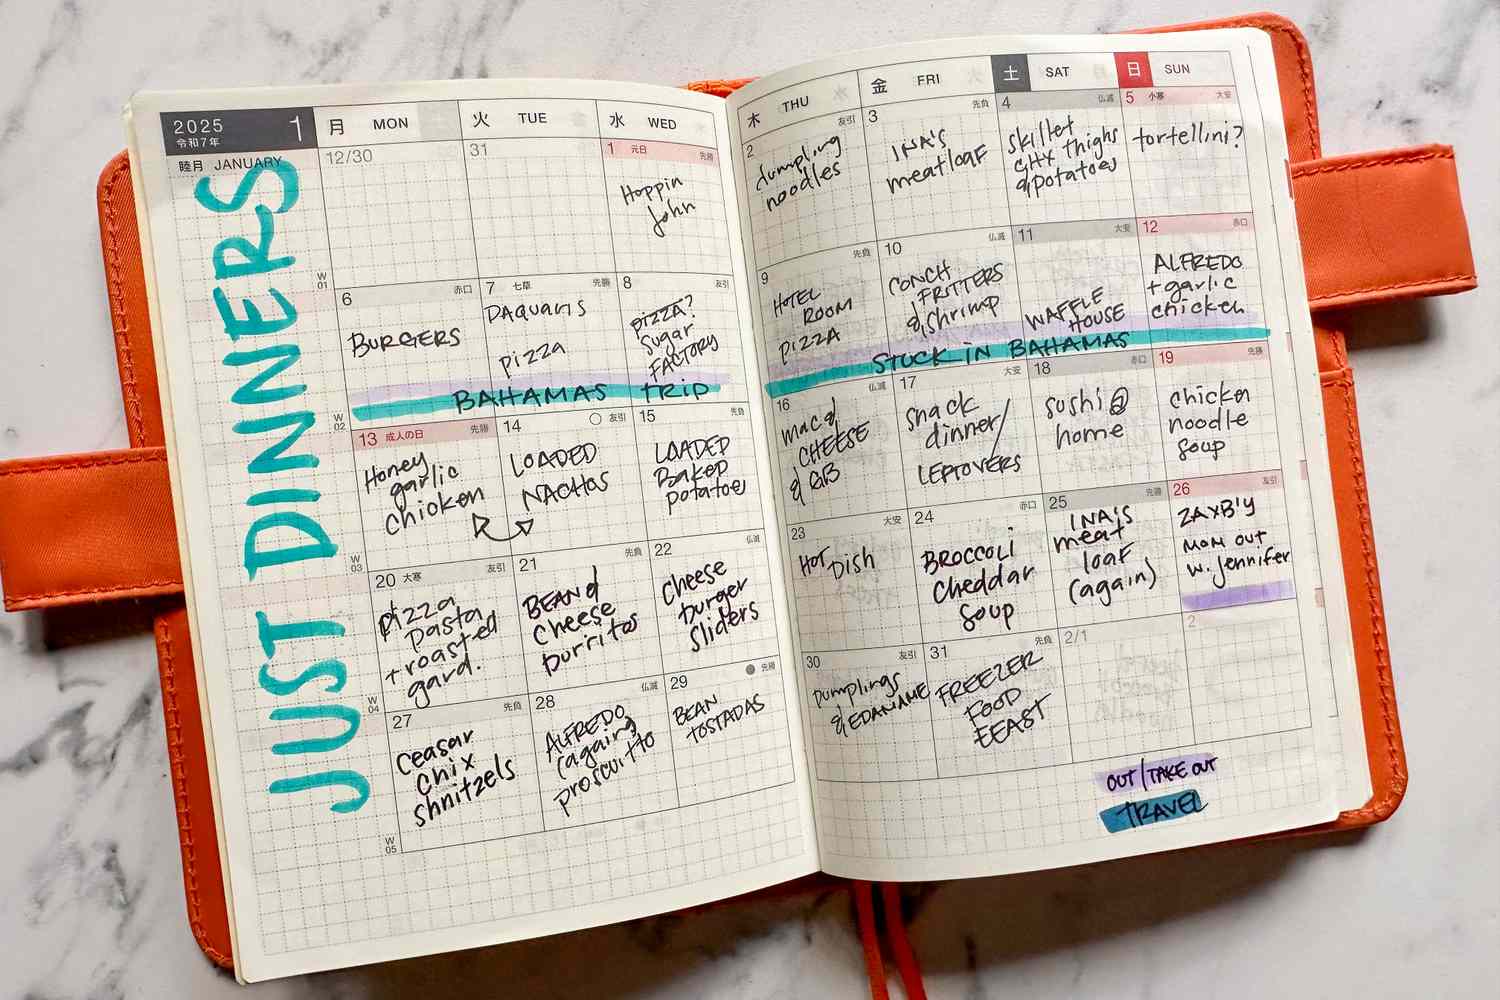 2025 1
令和7年
睦月 JANUARY
JUST DINNERS
月 MON 火 TUE 水 WED
12/30 31 1 元日 先勝
Hoppin
John
W
01
6 赤口 7 七草 先勝 8 友引
BURGERS
DAQUARIS
pizza
pizza?
Sugar
FACTORY
BAHAMAS TRIP
W
02
13 成人の日 先勝 14 友引 15 先負
Honey
garlic
chicken
LOADED
NACHOS
LOADED
Baked
potatoes
W
03
20 大寒 友引 21 先負 22 仏滅
pizza
pasta
+ roasted
gard.
BEAN &
Cheese
burritos
Cheese
burger
Sliders
W
04
27 先負 28 仏滅 29 先勝
Ceasar
Chix
Shnitzels
ALFREDO
(again)
proscuitto
BEAN
TOSTADAS
W
05
木 THU 金 FRI 土 SAT 日 SUN
2 友引 3 先負 4 仏滅 5 小寒 大安
dumpling
noodles
INA'S
meatloaf
skillet
chx thighs
& potatoes
tortellini?
9 先負 10 仏滅 11 大安 12 赤口
HOTEL
ROOM
PIZZA
CONCH
FRITTERS
& shrimp
WAFFLE
HOUSE
ALFREDO
+ garlic
chicken
STUCK IN BAHAMAS
16 仏滅 17 大安 18 赤口 19 先勝
mac &
CHEESE
& GB
snack
dinner/
LEFTOVERS
sushi @
home
chicken
noodle
soup
23 大安 24 赤口 25 先勝 26 友引
HOT DISH
BROCCOLI
Cheddar
Soup
INA'S
meat
loaf
(again)
ZAXB'Y
MOM OUT
w. Jennifer
30 友引 31 先負 2/1 2
Dumplings
& EDANAME
FREEZER
FOOD
EEAST
OUT/TAKE OUT
TRAVEL